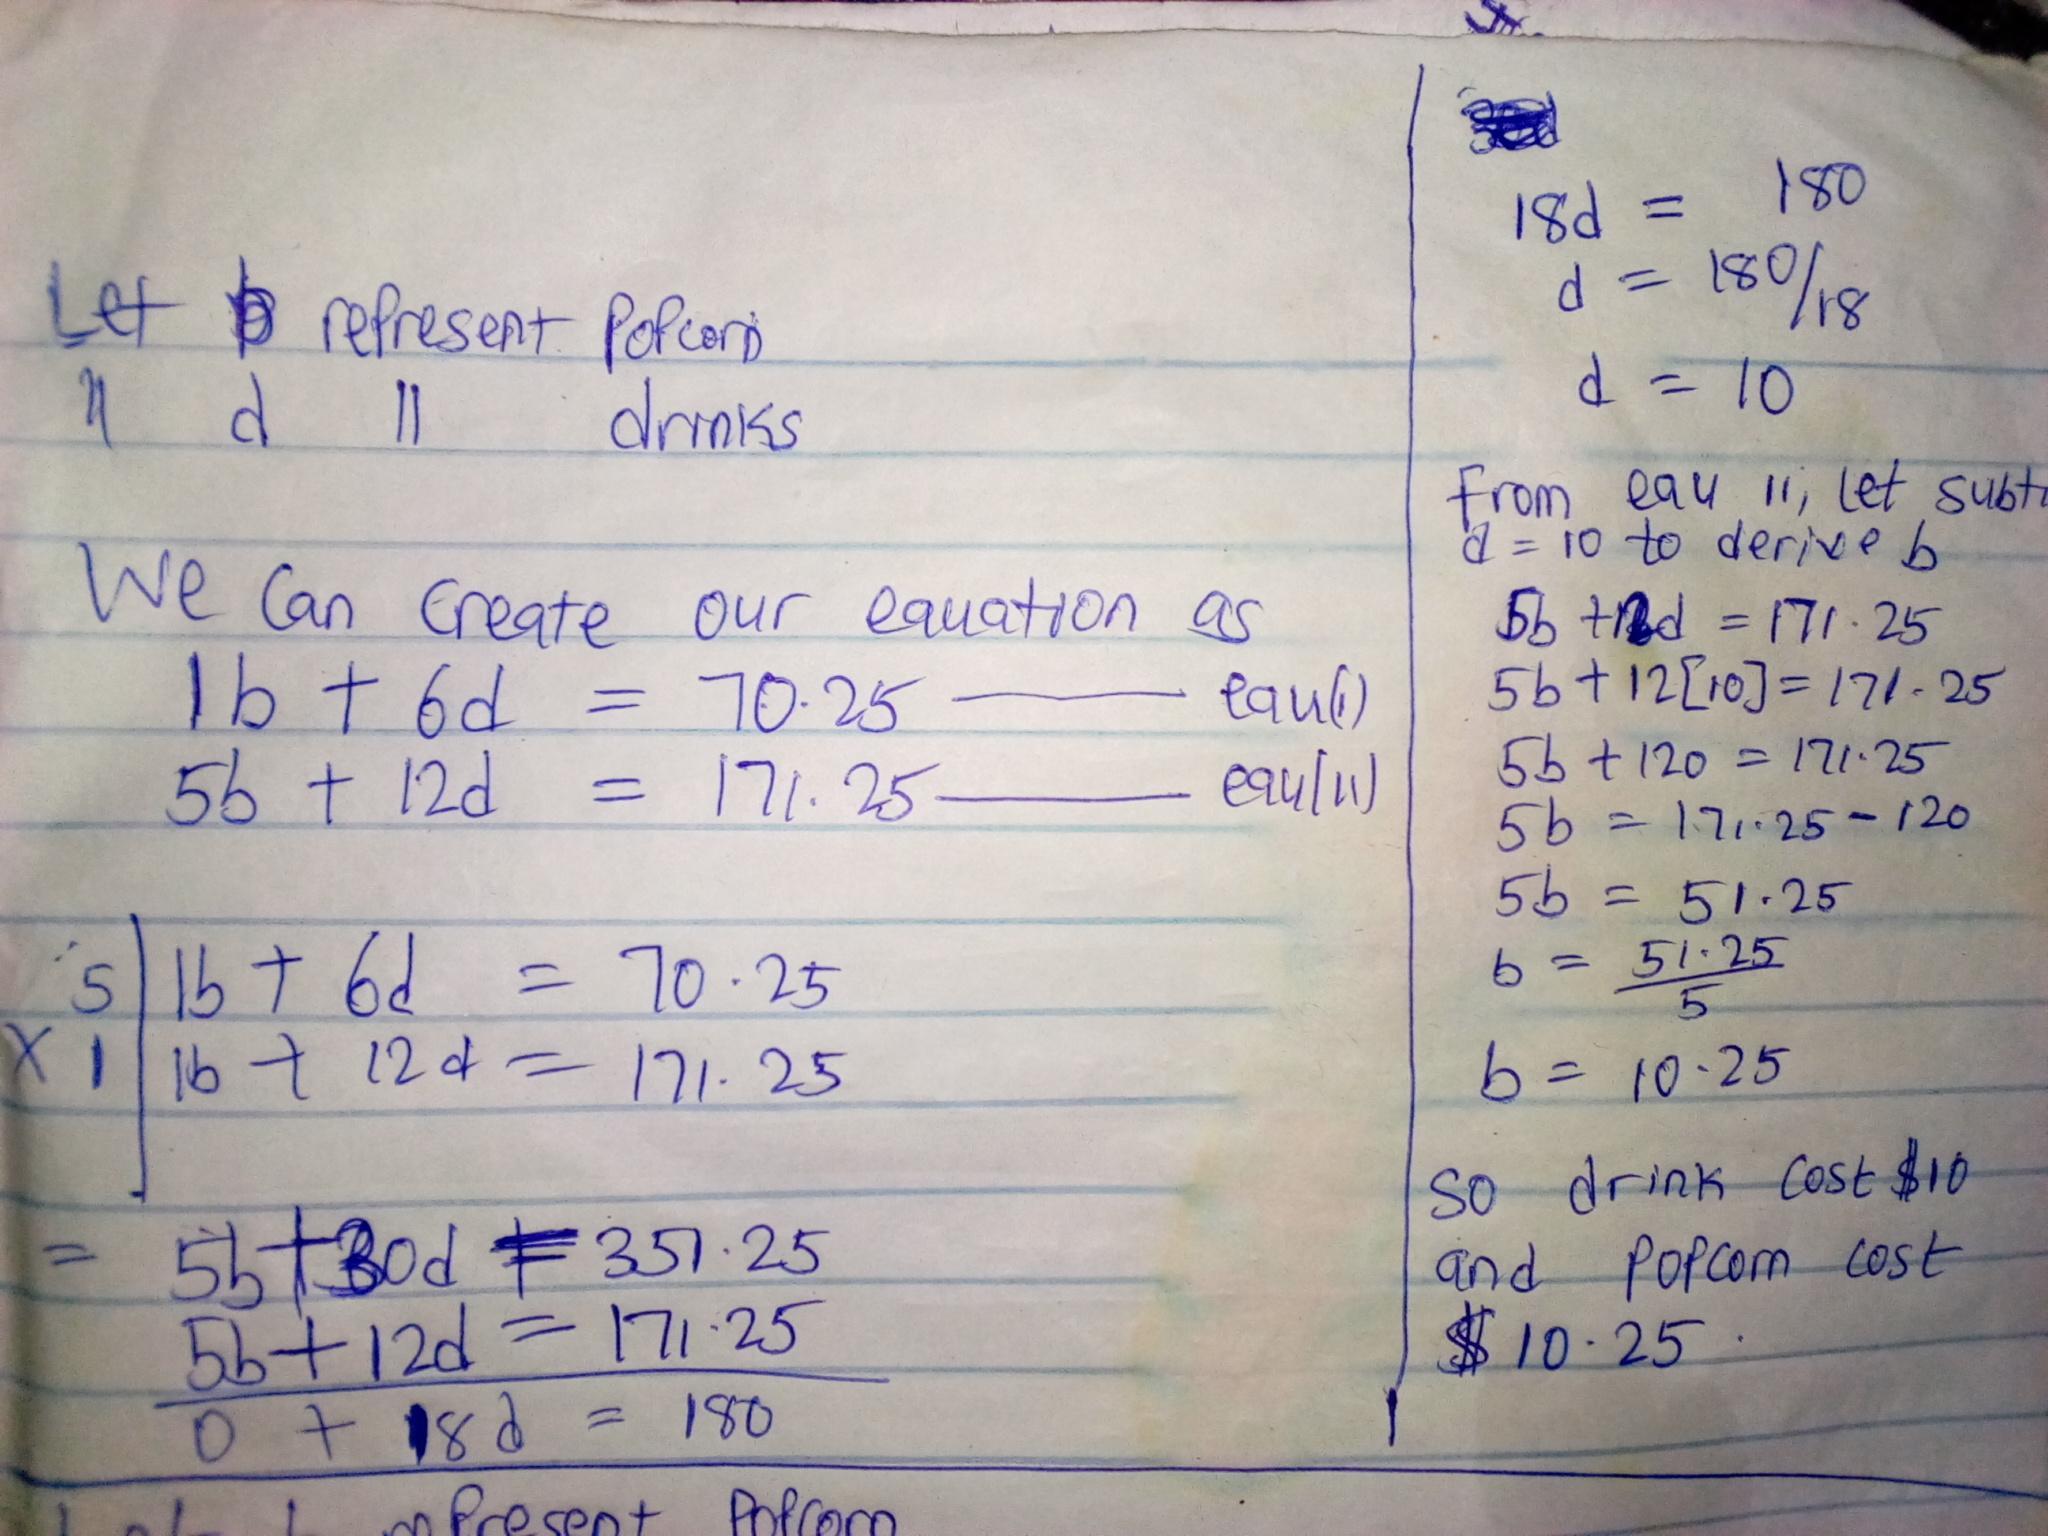 Let b represent Popcorn
" d " drinks
We Can Create our equation as
1b + 6d = 70.25 —— equ(i)
5b + 12d = 171.25 —— equ(ii)
5 | 1b + 6d = 70.25
x 1 | 1b + 12d = 171.25
= 5b + 30d = 351.25
5b + 12d = 171.25
0 + 18d = 180
represent Popcorn
18d = 180
d = 180/18
d = 10
From equ ii, let
d = 10 to derive b
5b + 12d = 171.25
5b + 12[10] = 171.25
5b + 120 = 171.25
5b = 171.25 - 120
5b = 51.25
b = 51.25
5
b = 10.25
So drink cost $10
and Popcorn cost
$10.25.